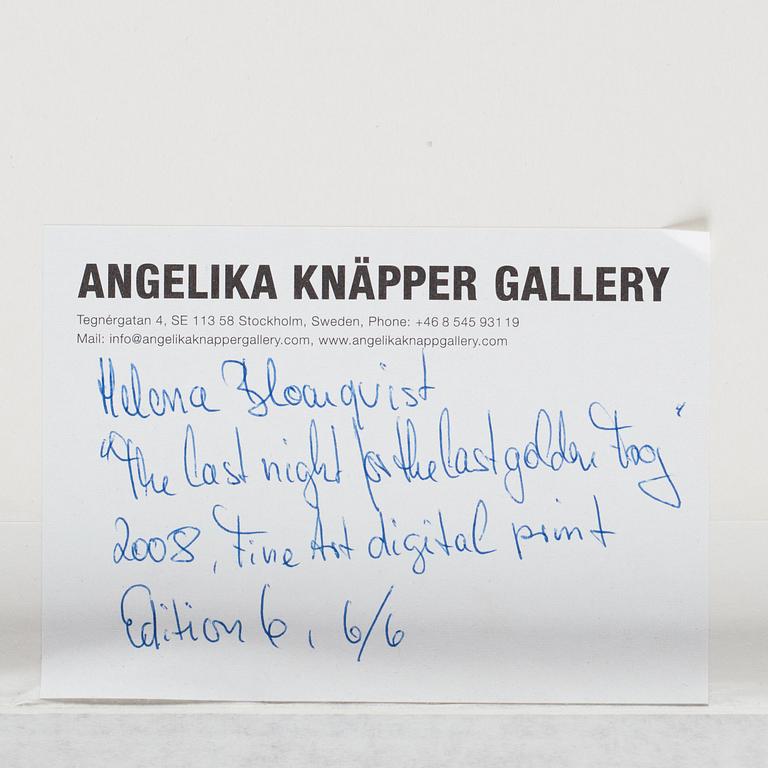 ANGELIKA KNÄPPER GALLERY
Tegnérgatan 4, SE 113 58 Stockholm, Sweden, Phone: +46 8 545 931 19
Mail: info@angelikaknappergallery.com, www.angelikaknappgallery.com
Helena Blomqvist
"The last night for the last golden Frog"
2008, Fine Art digital print
Edition 6, 6/6